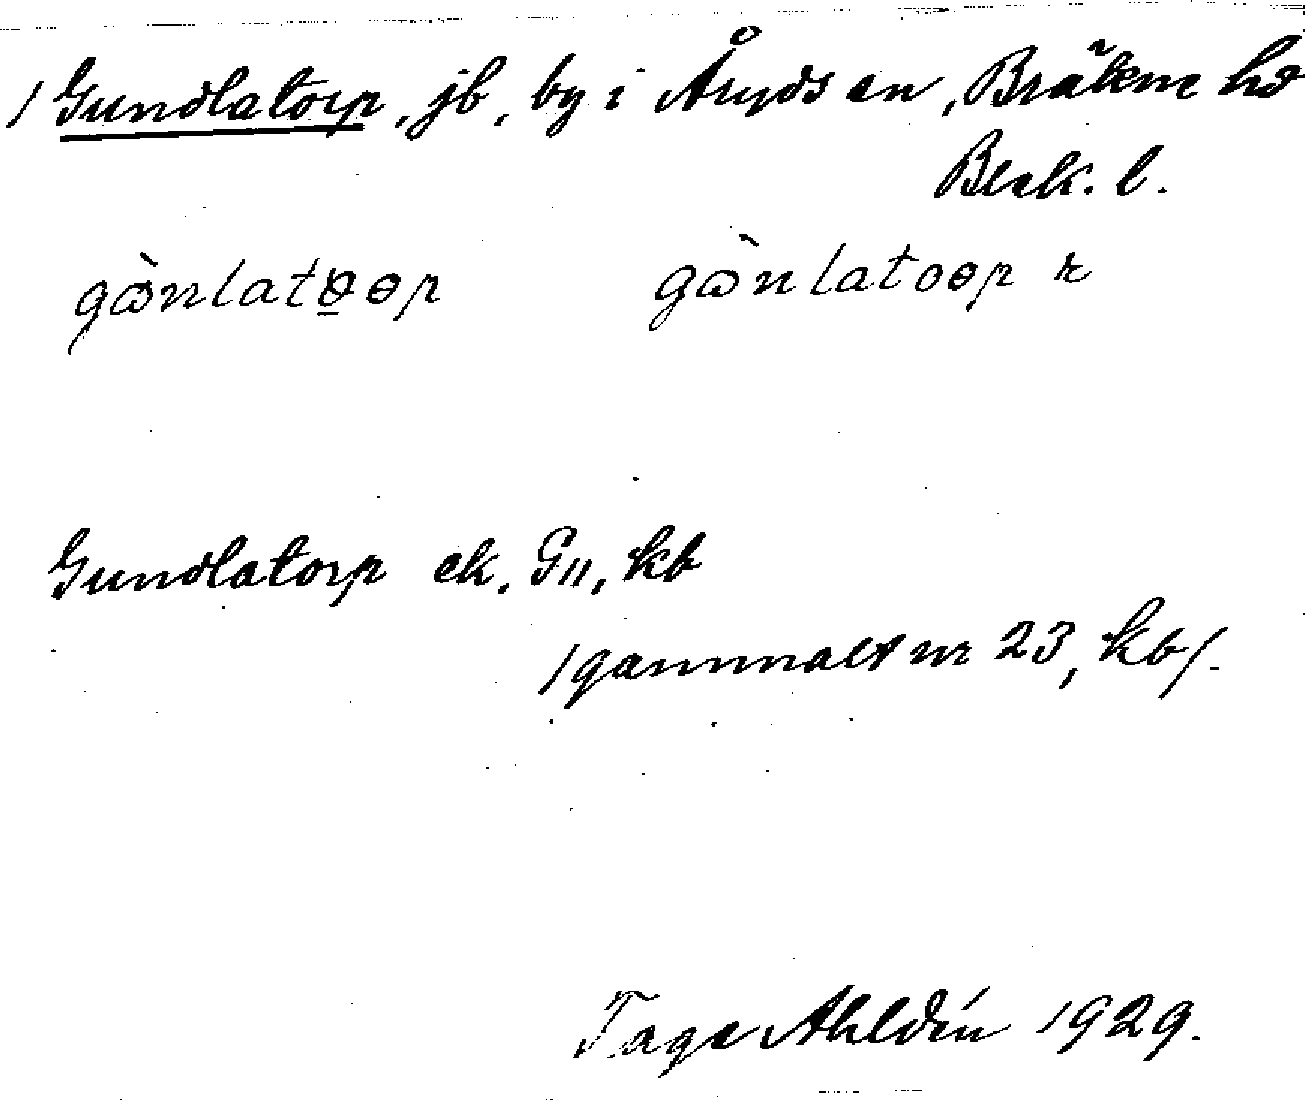 /Gundlatorp, jb, by i Åryds sn, Bräkne hd
Blek. l.
gὼnlatoɵp gὼnlatoɵp r
Gundlatorp ek, G11, kb
/gammalt nr 23, kb/.
Tage Ahldén 1929.